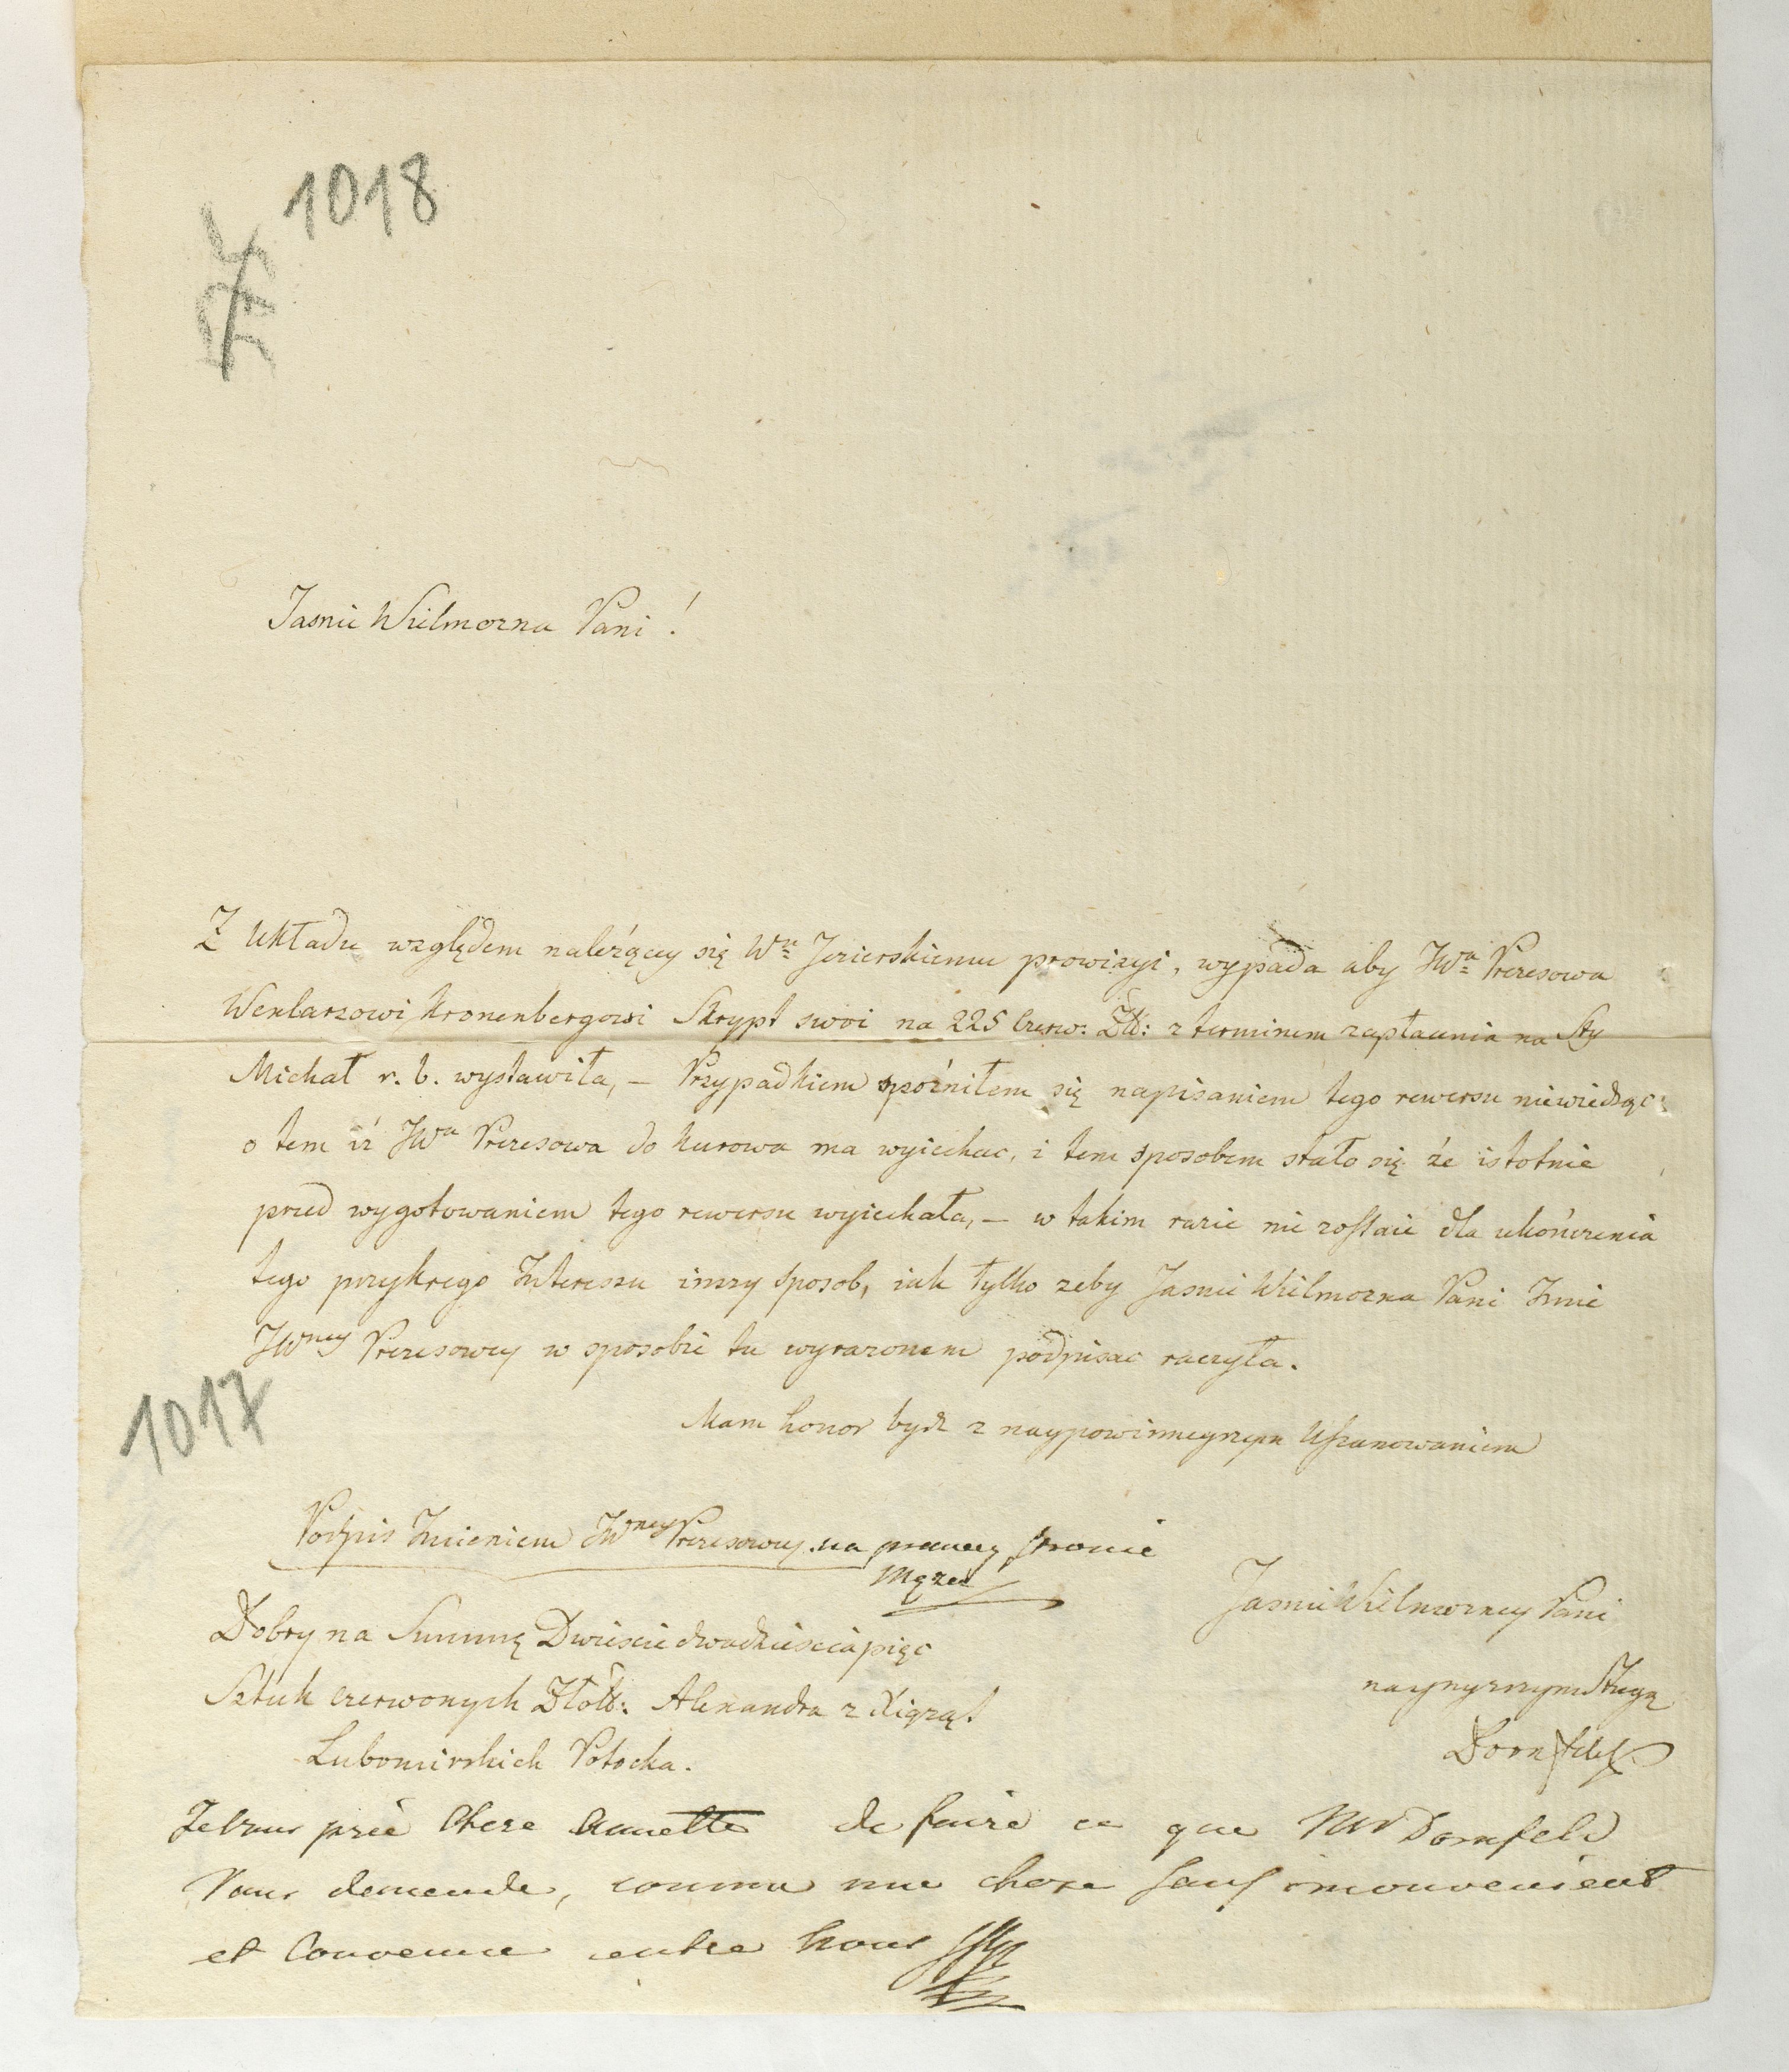 1018
Jasnie Wielmozna Pani!
Z Układu względem należący się Wu Jezierskiemu prowizyi, wypada aby JWa Prezesowa
Wexlarzowi Kronenbergowi Skrypt swoi na 225 Czerw: Zł: z terminem zapłacenia na Sty
Michał r. b. wystawiła, – Przypadkiem spóźniłem się napisaniem tego rewersu niewiedząc
o tem iż JWa Prezesowa do Kurowa ma wyiechac, i tem sposobem stało się że istotnie
przed wygotowaniem tego rewersu wyiechała, – w takim razie nie zostaie dla ukończenia
tego przykrego Interessu inszy sposob, iak tylko zeby Jasnie Wielmozna Pani Imie
JWney Prezesowey w sposobie tu wyrazonem podpisac raczyła.
1017
Mam honor bydz z naypowinnieyszym Uszanowaniem
Podpis Imieniem JWney Prezesowey. na prawey stronie
Mężei
Jasnie Wielmozney Pani
Dobry na Summę Dwieście dwadzieścia pięc
Sztuk czerwonych Złott: Alexandra z Xiążąt
nayniższym Sługą
Lubomirskich Potocka.
Dornfeld
Je vous prie Chere Annette de faire ce que Mr Dornfeld
Vous demende, comme une chose sans inconvenient
et Convenue entre nous